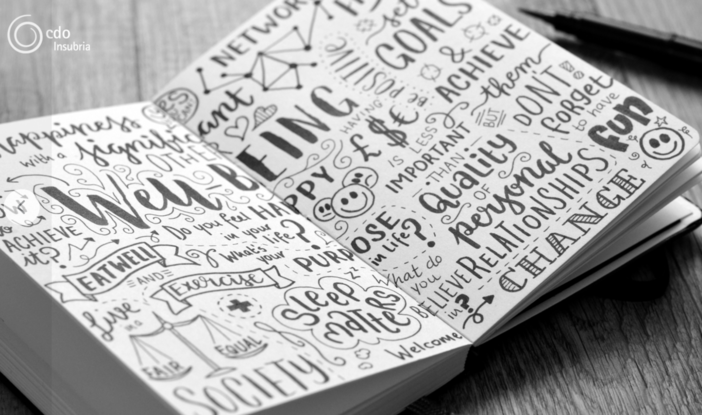 cdo
Insubria
Happiness
with a significant
OTHER
Well-BEING
ACHIEVE
it?
Do you feel HAPPY
in your life?
What's your PURPOSE
in life?
EAT WELL
AND
Exercise
Sleep
Matters
live in a
FAIR
EQUAL
SOCIETY
Welcome
CHANGE
What do
you
BELIEVE
in?
NETWORK
YES
YOU
CAN
BE POSITIVE
set
GOALS
& ACHIEVE
them
HAVING
£$€
IS LESS
IMPORTANT
THAN
Quality
OF
personal
RELATIONSHIPS
BUT
DON'T!
forget
to have
fun